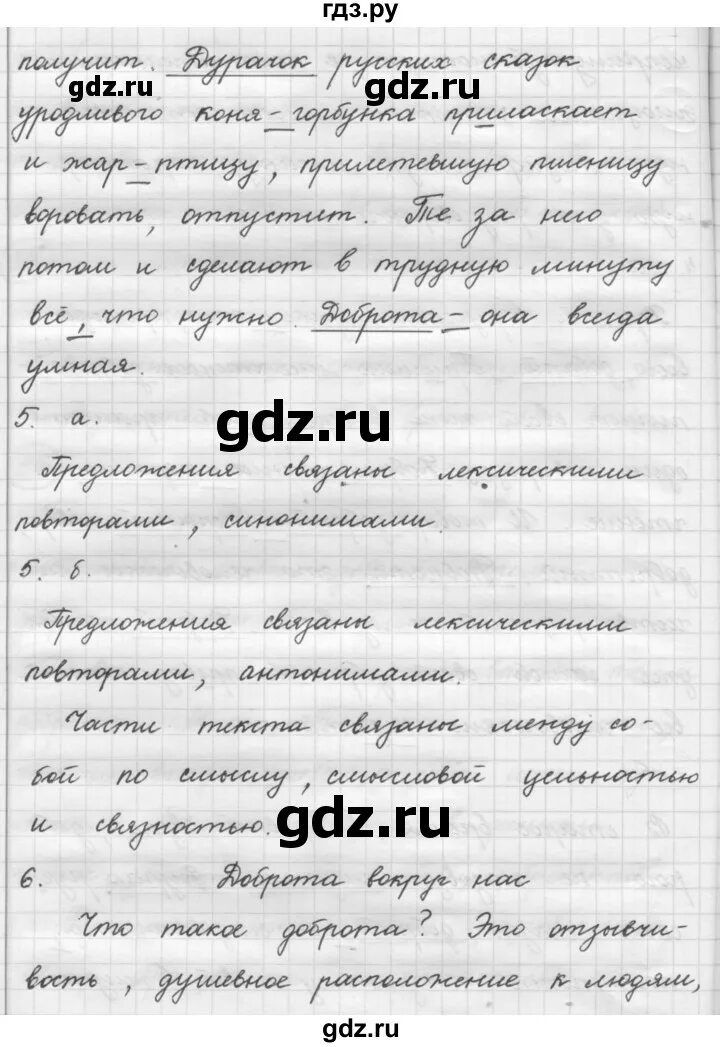 гдз.ру
получит. Дурачок русских сказок
gdz.ru gdz.ru
уродливого коня-горбунка приласкает
и жар-птицу, прилетевшую пшеницу
воровать, отпустит. Те за него
потом и сделают в трудную минуту
всё, что нужно. Доброта - она всегда
умная.
5. а.
gdz.ru
Предложения связаны лексическими
повторами, синонимами.
5. б.
Предложения связаны лексическими
повторами, антонимами.
Части текста связаны между со-
бой по смыслу, смысловой цельностью
и связностью.
gdz.ru
6. Доброта вокруг нас
Что такое доброта? Это отзывчи-
вость, душевное расположение к людям,
gdz.ru